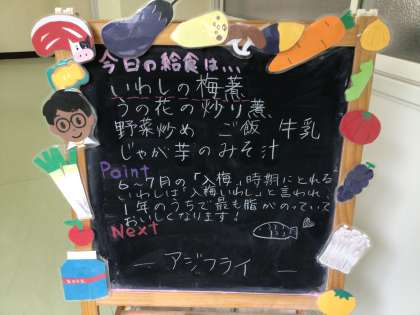 今日の給食は、、、
いわしの梅煮
うの花の炒り煮
野菜炒め ご飯 牛乳
じゃが芋のみそ汁
Point
6～7月の「入梅」時期にとれる
いわしは「入梅いわし」と言われ、
1年のうちで最も脂がのっていて
おいしくなります!
Next
― アジフライ ―